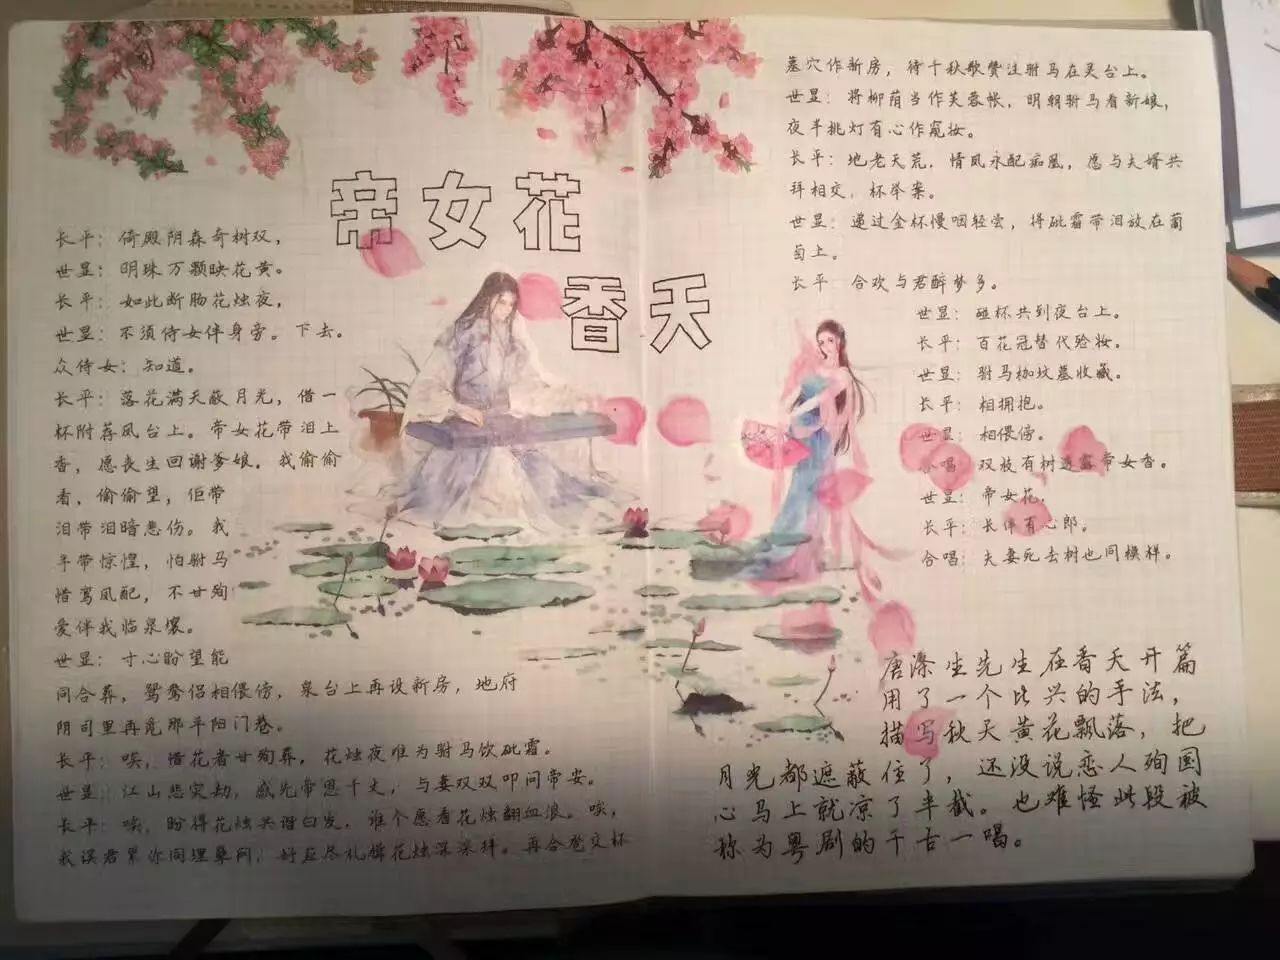 帝女花
香夭
长平：倚殿阴森奇树双，
世显：明珠万颗映花黄。
长平：如此断肠花烛夜，
世显：不须侍女伴身旁。下去。
众侍女：知道。
长平：落花满天蔽月光，借一
杯附荐凤台上。帝女花带泪上
香，愿丧生回谢爹娘。我偷偷
看，偷偷望，佢带
泪带泪暗悲伤。我
半带惊惶，怕驸马
惜鸾凤配，不甘殉
爱伴我临泉壤。
世显：寸心盼望能
同合葬，鸳鸯侣相偎傍，泉台上再设新房，地府
阴司里再觅那平阳门巷。
长平：唉，惜花者甘殉葬，花烛夜难为驸马饮砒霜。
世显：江山悲灾劫，感先帝恩千丈，与妻双双叩问帝安。
长平：唉，盼得花烛共谐白发，谁个愿看花烛翻血浪。唉，
我误君累你同埋孽网，好应尽礼揖花烛深深拜。再合卺交杯
墓穴作新房，待千秋歌赞注驸马在灵台上。
世显：将柳荫当作芙蓉帐，明朝驸马看新娘，
夜半挑灯有心作窥妆。
长平：地老天荒，情凤永配痴凰，愿与夫婿共
拜相交，杯举案。
世显：递过金杯慢咽轻尝，将砒霜带泪放在葡
萄上。
长平 合欢与君醉梦乡。
世显：碰杯共到夜台上。
长平：百花冠替代殓妆。
世显：驸马枷坟墓收藏。
长平：相拥抱。
世显：相偎傍。
合唱：双枝有树透露帝女香。
世显：帝女花，
长平：长伴有心郎。
合唱：夫妻死去树也同模样。
唐涤生先生在香夭开篇
用了一个比兴的手法，
描写秋天黄花飘落，把
月光都遮蔽住了，还没说恋人殉国
心马上就凉了半截。也难怪此段被
称为粤剧的千古一唱。